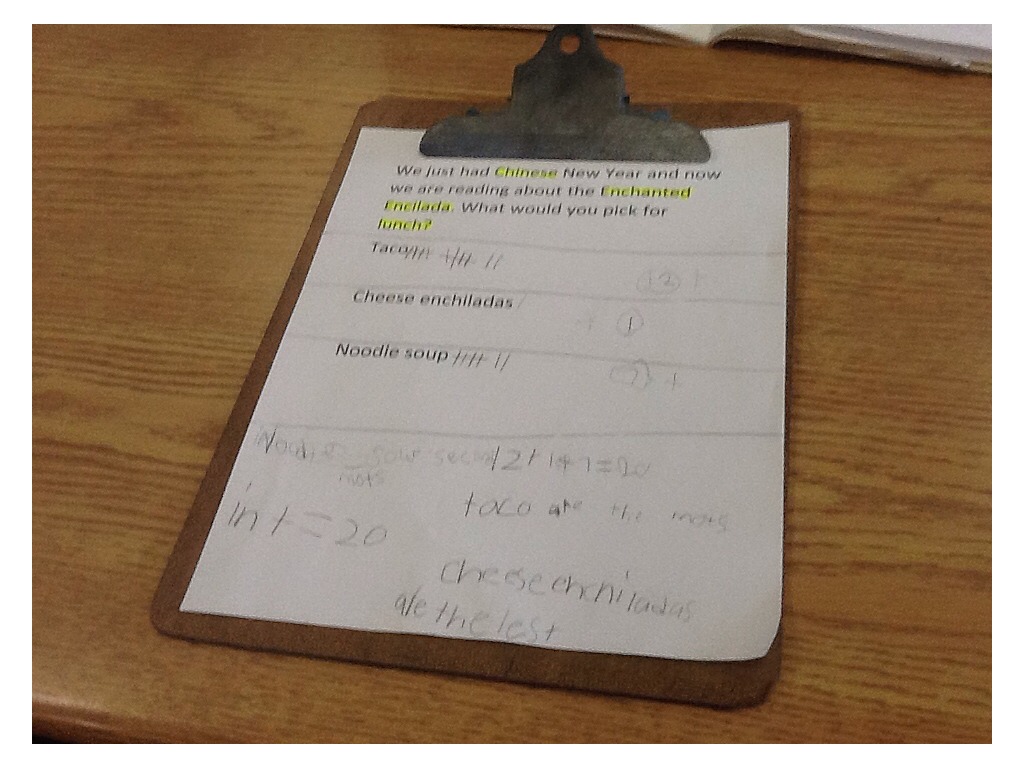 We just had Chinese New Year and now
we are reading about the Enchanted
Encilada. What would you pick for
lunch?
Taco
12 +
Cheese enchiladas
+ 1
Noodle soup
7 +
second 12+1+7=20
mots
taco are the mots
in t=20
cheese enchiladas
are the lest